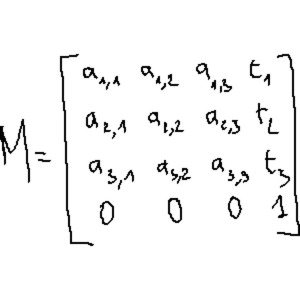 M = [ a1,1 a1,2 a1,3 t1
a2,1 a2,2 a2,3 t2
a3,1 a3,2 a3,3 t3
0 0 0 1 ]